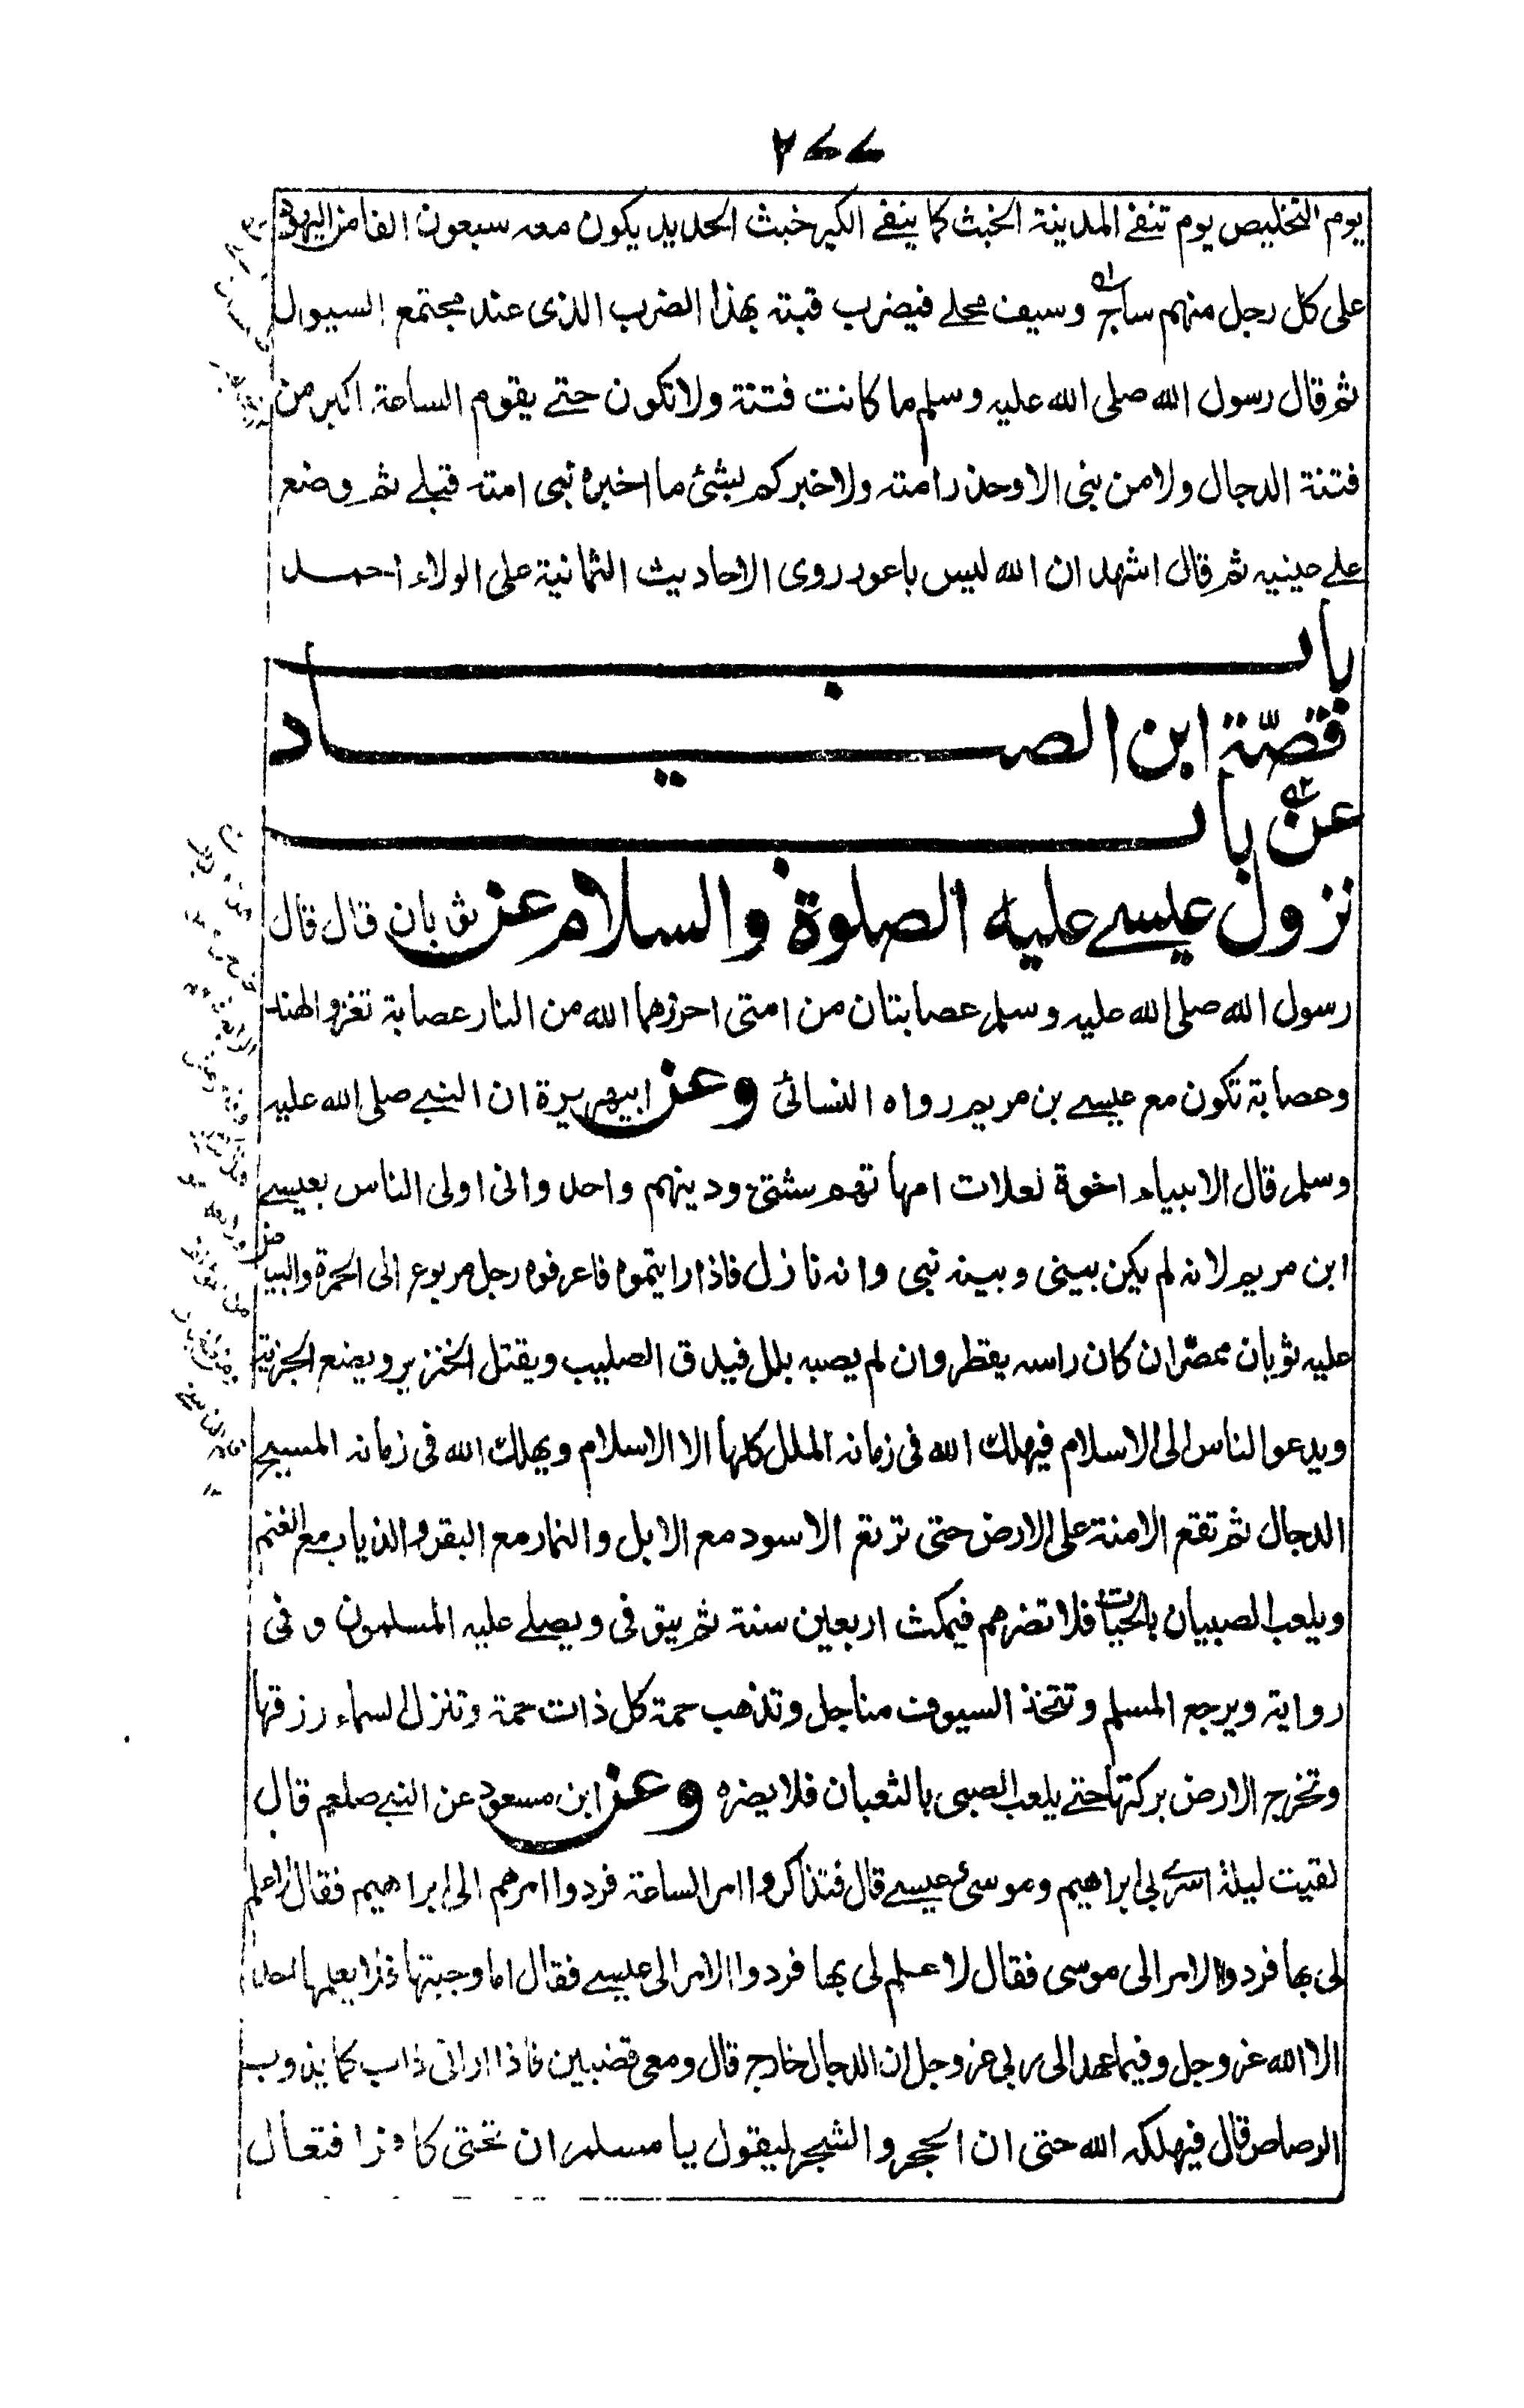 ٢٧٧
يوم التخليص يوم تنفے المدينة الخبث كما ينفے الكير خبث الحديد يكون معه سبعون الفا من اليهود
على كل رجل منهم ساج وسيف محلے فيضرب قبته بهذا الضرب الذى عند مجتمع السيول
ثم قال رسول الله صلى الله عليه وسلم ما كانت فتنة ولا تكون حتے يقوم الساعة اكبر من
فتنة الدجال ولا من نبى الا وحذر امته ولاخبركم بشئ ما اخبره نبى امته قبلے ثم وضع
علے عينيه ثم قال اشهد ان الله ليس باعور روى الاحاديث الثمانية على الولاء احمد
باب
قصّة ابن الصياد
عن باب
نزول عيسے عليه الصلوة والسلام عن ثوبان قال قال
رسول الله صلى الله عليه وسلم عصابتان من امتى احرزهما الله من النار عصابة تغزو الهند
وعصابة تكون مع عيسے بن مريم رواه النسائى وعن ابيهريرة ان النبے صلى الله عليه
وسلم قال الانبياء اخوة لعلات امهاتهم شتى ودينهم واحد وانى اولى الناس بعيسے
ابن مريم لانه لم يكن بينى وبينه نبى وانه نازل فاذا رايتموه فاعرفوه رجل مربوع الى الحمرة والبياض
عليه ثوبان ممصران كان راسه يقطر وان لم يصبه بلل فيدق الصليب ويقتل الخنزير ويضع الجزية
ويدعوا الناس الى الاسلام فيهلك الله فى زمانه الملل كلها الا الاسلام ويهلك الله فى زمانه المسيح
الدجال ثم تقع الامنة على الارض حتى ترتع الاسود مع الابل والنمار مع البقر والذياب مع الغنم
ويلعب الصبيان بالحيات فلا تضرهم فيمكث اربعين سنة ثم يتوفى ويصلے عليه المسلمون وفى
رواية ويرجع المسلم وتتخذ السيوف مناجل وتذهب حمة كل ذات حمة وتنزل السماء رزقها
وتخرج الارض بركتها حتے يلعب الصبى بالثعبان فلا يضره وعن ابن مسعود عن النبے صلعم قال
لقيت ليلة اسرے بى ابراهيم وموسى عيسے قال فتذاكروا امر الساعة فردوا امرهم الى ابراهيم فقال لا علم
لى بها فردوا الامر الى موسى فقال لا علم لى بها فردوا الامر الى عيسے فقال اما وجبتها فلا يعلمها احد
الا الله عز وجل وفيما عهد الى ربى عز وجل ان الدجال خارج قال ومعى قضيبين فاذا ارانى ذاب كما يذوب
الرصاص قال فيهلكه الله حتى ان الحجر والشجر ليقول يا مسلم ان تحتى كافرا فتعال